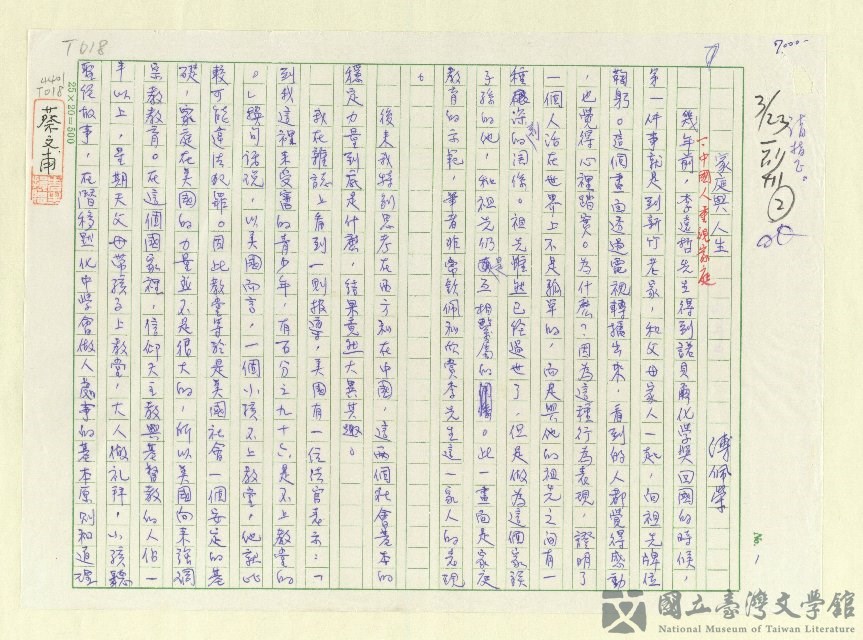 T018
7,000-
請指正。
3/23
家庭與人生
傅佩榮
一、中國人重視家庭
幾年前，李遠哲先生得到諾貝爾化學獎回國的時候，
第一件事就是到新竹老家，和父母家人一起，向祖先牌位
鞠躬。這個畫面透過電視轉播出來，看到的人都覺得感動
，也覺得心裡踏實。為什麼？因為這種行為表現，證明了
一個人活在世界上不是孤單的，而是與他的祖先之間有一
種很深的關係。祖先雖然已經過世了，但是做為這個家族
子孫的他，和祖先仍是互相繫屬的。此一畫面是家庭
教育的示範，筆者非常欽佩和欣賞李先生這一家人的表現
。
後來我特別思考在西方和在中國，這兩個社會基本的
穩定力量到底是什麼，結果竟然大異其趣。
我在雜誌上看到一則報導，美國有一位法官表示：「
到我這裡來受審的青少年，有百分之九十七是不上教堂的
。」換句話說，以美國而言，一個小孩不上教堂，他就比
較可能違法犯罪。因此教堂等於是美國社會一個安定的基
礎，家庭在美國的力量並不是很大的，所以美國向來強調
宗教教育。在這個國家裡，信仰天主教與基督教的人佔一
半以上，星期天父母帶孩子上教堂，大人做禮拜，小孩聽
聖經故事，在潛移默化中學會做人處事的基本原則和道理
25×20=500
4401
T018
蔡文甫
國立臺灣文學館
National Museum of Taiwan Literature